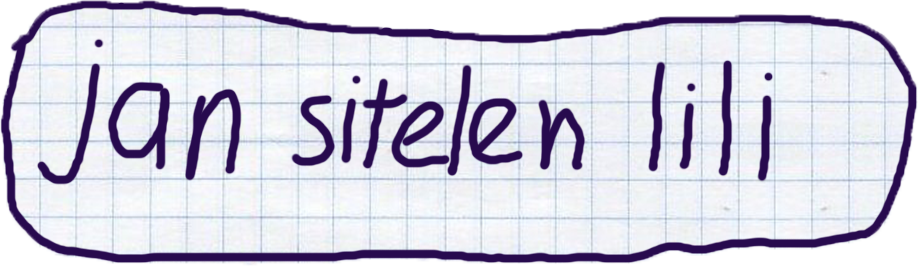 jan sitelen lili